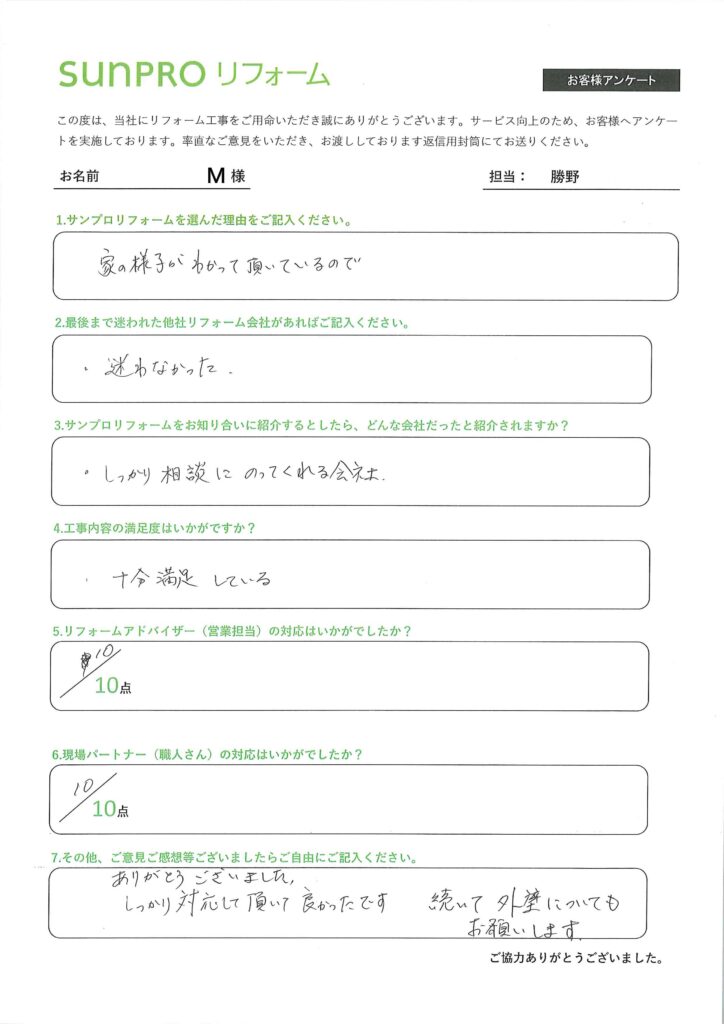 sunPRO リフォーム
お客様アンケート
この度は、当社にリフォーム工事をご用命いただき誠にありがとうございます。サービス向上のため、お客様へアンケー
トを実施しております。率直なご意見をいただき、お渡ししております返信用封筒にてお送りください。
お名前 M 様 担当： 勝野
1.サンプロリフォームを選んだ理由をご記入ください。
家の様子がわかって頂いているので
2.最後まで迷われた他社リフォーム会社があればご記入ください。
・迷わなかった.
3.サンプロリフォームをお知り合いに紹介するとしたら、どんな会社だったと紹介されますか？
・しっかり相談にのってくれる会社.
4.工事内容の満足度はいかがですか？
・十分満足している
5.リフォームアドバイザー（営業担当）の対応はいかがでしたか？
10/10点
6.現場パートナー（職人さん）の対応はいかがでしたか？
10/10点
7.その他、ご意見ご感想等ございましたらご自由にご記入ください。
ありがとうございました,
しっかり対応して頂いて良かったです 続いて外壁についても
お願いします.
ご協力ありがとうございました。